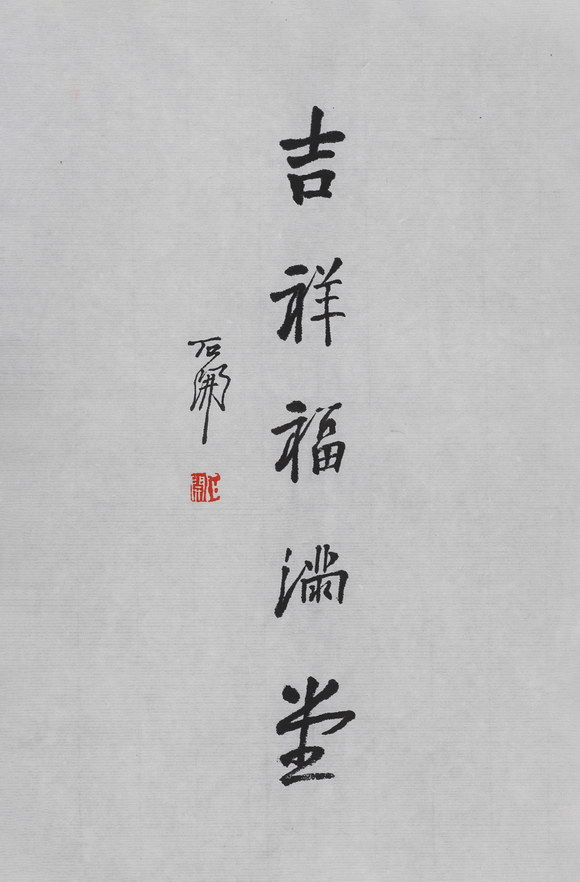 吉祥福满堂
石開